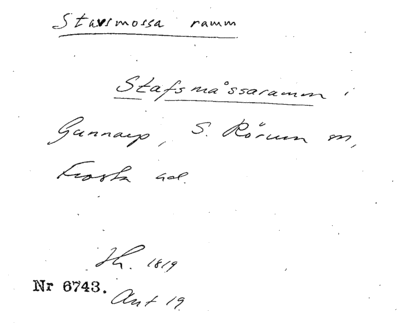 Stavsmossa ramm
Stafsmåssaramm i
Gunnarp, S. Rörum m,
Frosta hd.
Th. 1819
Nr 6743.
Ant 19.